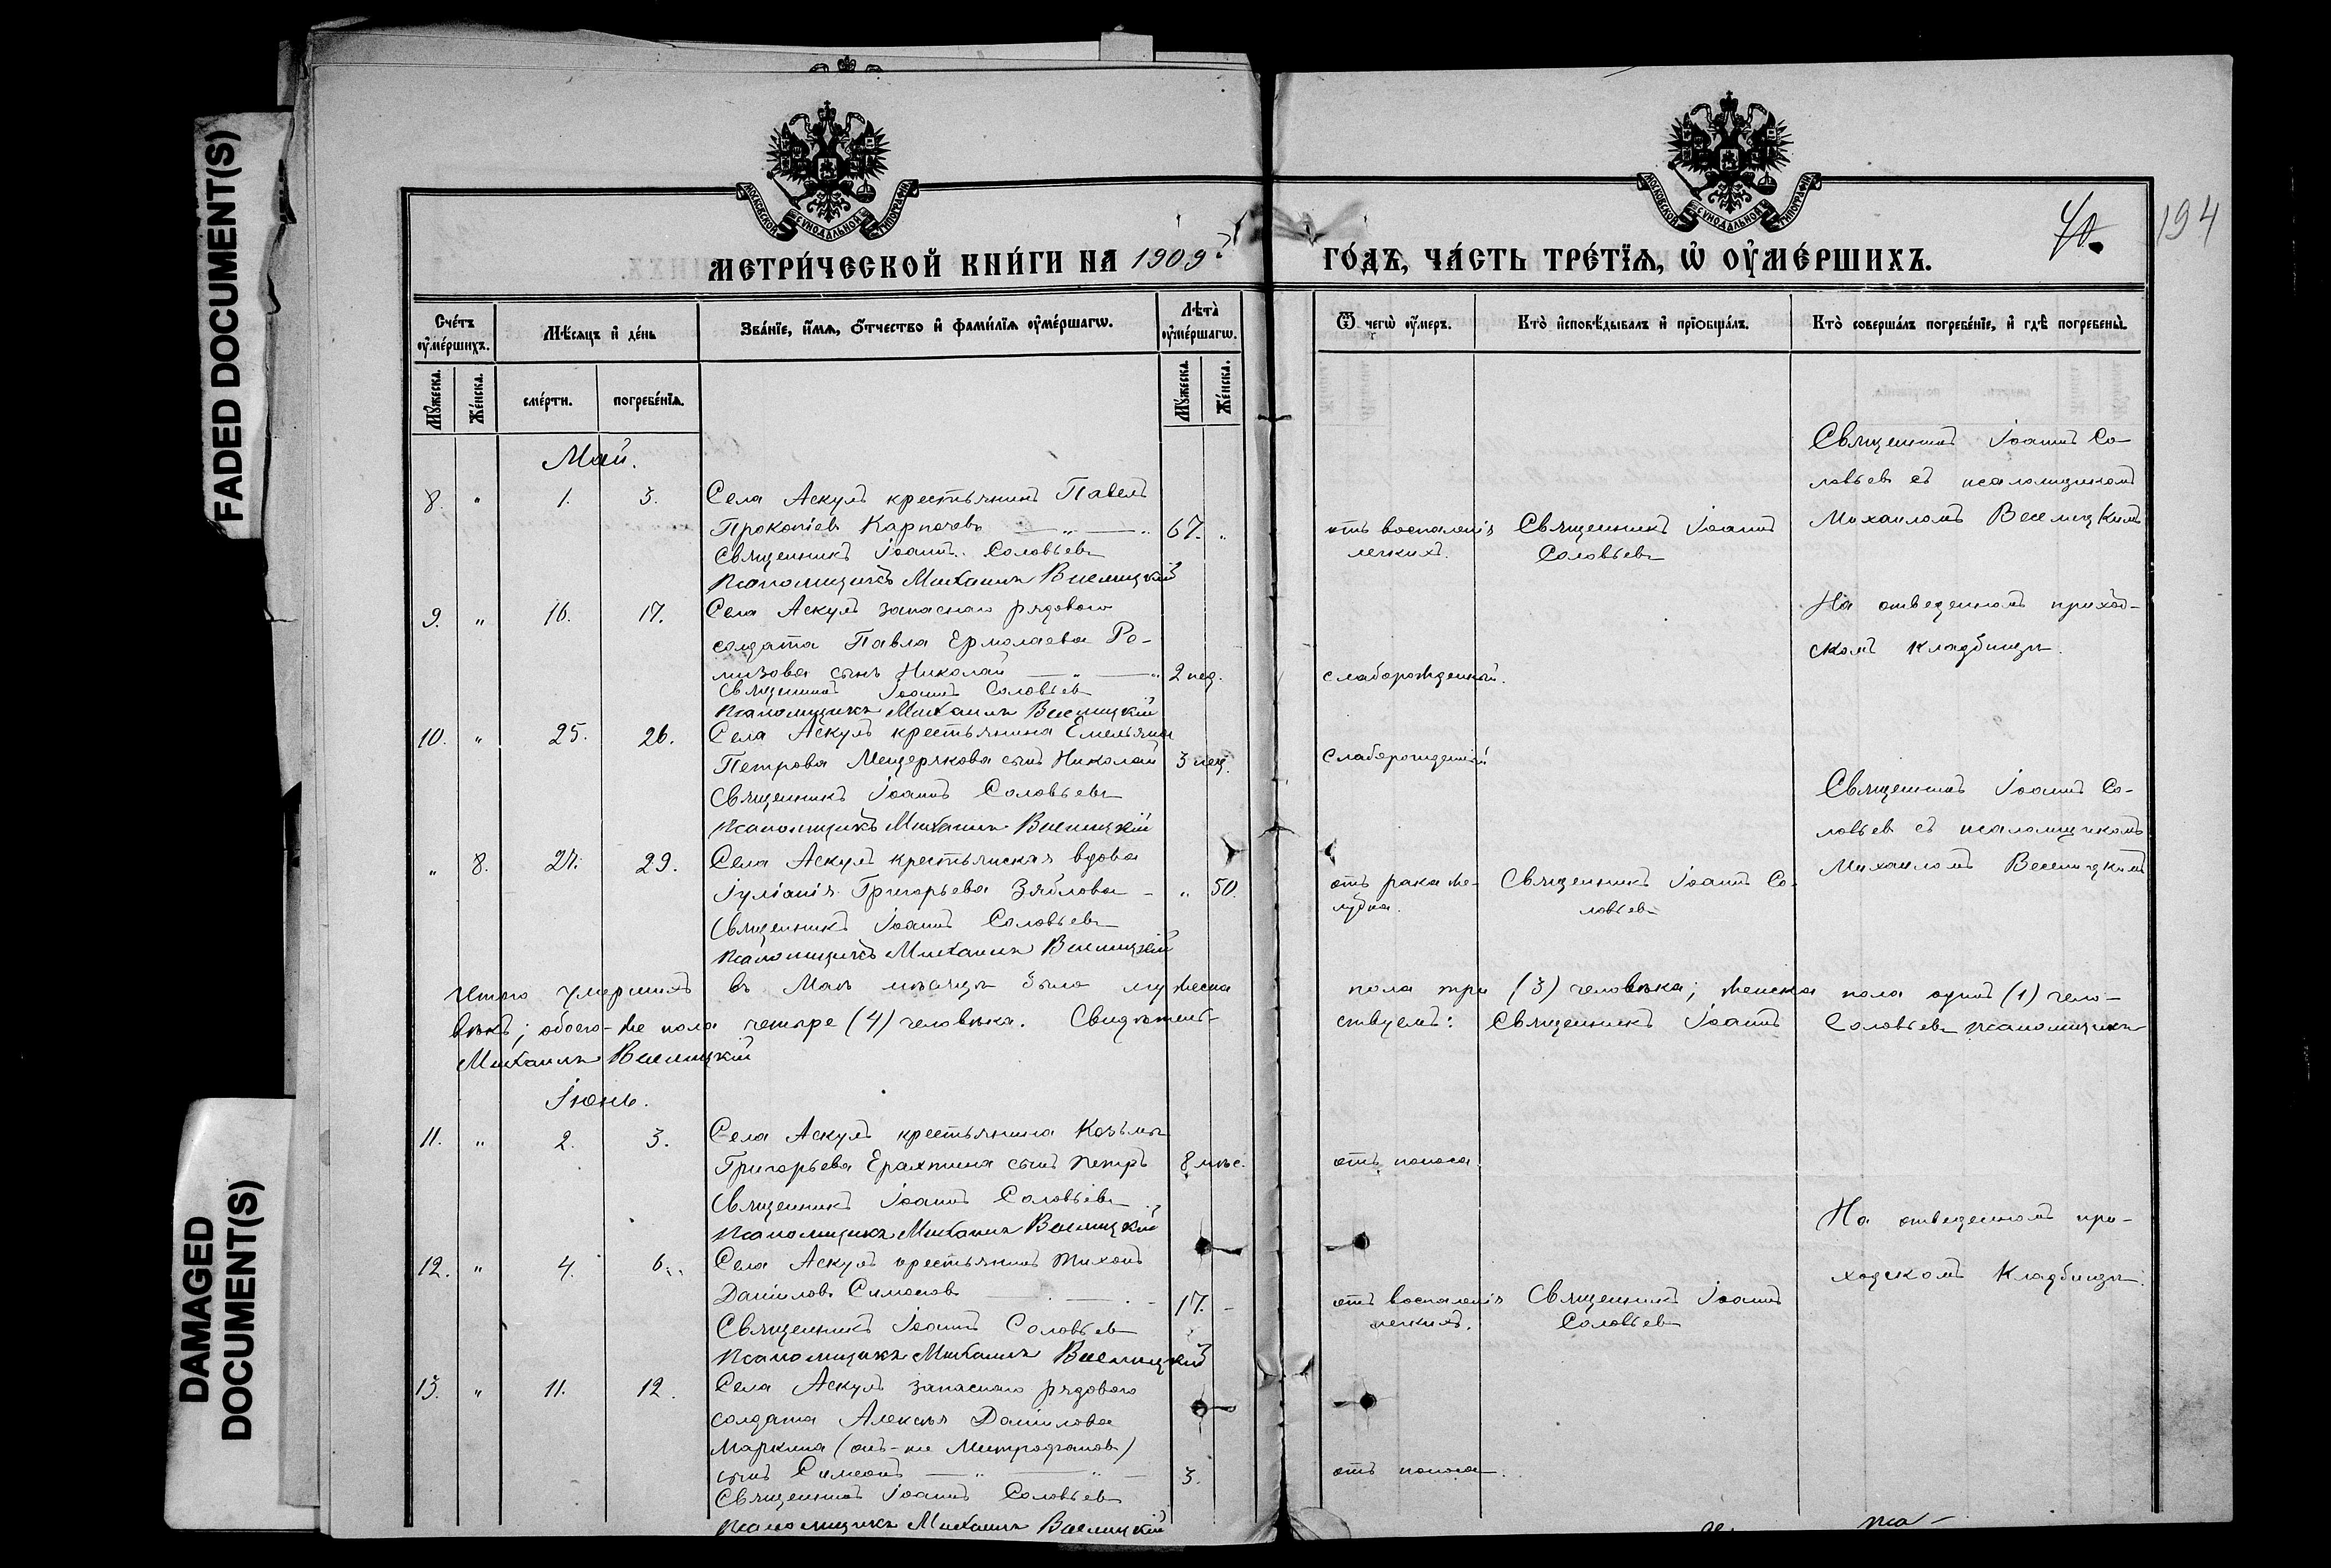 FADED DOCUMENT(S)
DAMAGED
DOCUMENT(S)
МОСКОВСКОЙ СУНОДАЛЬНОЙ ТИПОГРАФІИ
МОСКОВСКОЙ СУНОДАЛЬНОЙ ТИПОГРАФІИ
194
МЕТРИ́ЧЕСКОЙ КНИ́ГИ НА 1909 й
ГО́ДЪ, ЧА́СТЬ ТРЕ́ТІѦ, Ѡ ОУМЕ́РШИХЪ.
Счéтъ оумéршихъ.
Мѣсяцъ и дéнь
Звáніе, и́мя, óтчество и фами́лія оумéршагѡ.
Лѣтà оумéршагѡ.
Ѿ чегѡ̀ оýмеръ.
Ктò исповѣ́дывалъ и пріобщáлъ.
Ктò совершáлъ погребéніе, и гдѣ̀ погребены̀.
Мýжеска.
Жéнска.
смéрти.
погребéнія.
Мýжеска.
Жéнска.
Май.
8. " 1. 3. Села Аскулъ крестьянинъ Павелъ
Прокопіевъ Карпочевъ — " — " 67. "
Священникъ Іоаннъ Соловьевъ
Псаломщикъ Михаилъ Веселицкій
отъ воспаленія
легкихъ.
Священникъ Іоаннъ
Соловьевъ
Священникъ Іоаннъ Со-
ловьевъ съ псаломщикомъ
Михаиломъ Веселицкимъ
9. " 16. 17. Села Аскулъ запаснаго рядового
солдата Павла Ермолаева Ро-
мизова сынъ Николай — " — " 2 нед.
Священникъ Іоаннъ Соловьевъ
Псаломщикъ Михаилъ Веселицкій
слаборожденный.
На отведенномъ приход-
скомъ кладбищѣ.
10. " 25. 26. Села Аскулъ крестьянина Емельяна
Петрова Мещерякова сынъ Николай 3 нед.
Священникъ Іоаннъ Соловьевъ
Псаломщикъ Михаилъ Веселицкій
Слаборожденный
Священникъ Іоаннъ Со-
ловьевъ съ псаломщикомъ
Михаиломъ Веселицкимъ
" 8. 27. 29. Села Аскулъ крестьянская вдова
Іуліанія Григорьева Зяблова - " 50.
Священникъ Іоаннъ Соловьевъ
Псаломщикъ Михаилъ Веселицкій
отъ рака же-
лудка.
Священникъ Іоаннъ Со-
ловьевъ
Итого умершихъ въ Маѣ мѣсяцѣ было мужеска пола три (3) человѣка; женска пола одинъ (1) чело-
вѣкъ; обоего-же пола четыре (4) человѣка. Свидѣтель-
ствуемъ: Священникъ Іоаннъ Соловьевъ Псаломщикъ
Михаилъ Веселицкій
Іюнь.
11. " 2. 3. Села Аскулъ крестьянина Козьмы
Григорьева Ерахтина сынъ Петръ 8 мѣс.
Священникъ Іоаннъ Соловьевъ
Псаломщикъ Михаилъ Веселицкій
отъ поноса
На отведенномъ при-
ходскомъ кладбищѣ.
12. " 4. 6. Села Аскулъ крестьянинъ Тихонъ
Даніиловъ Симоновъ — 17. -
Священникъ Іоаннъ Соловьевъ
Псаломщикъ Михаилъ Веселицкій
отъ воспаленія
легкихъ.
Священникъ Іоаннъ
Соловьевъ
13. " 11. 12. Села Аскулъ запаснаго рядового
солдата Алексѣя Даніилова
Маркина (онъ-же Митрофановъ)
сынъ Симеонъ — " — " — 3.
Священникъ Іоаннъ Соловьевъ
Псаломщикъ Михаилъ Веселицкій
отъ поноса.